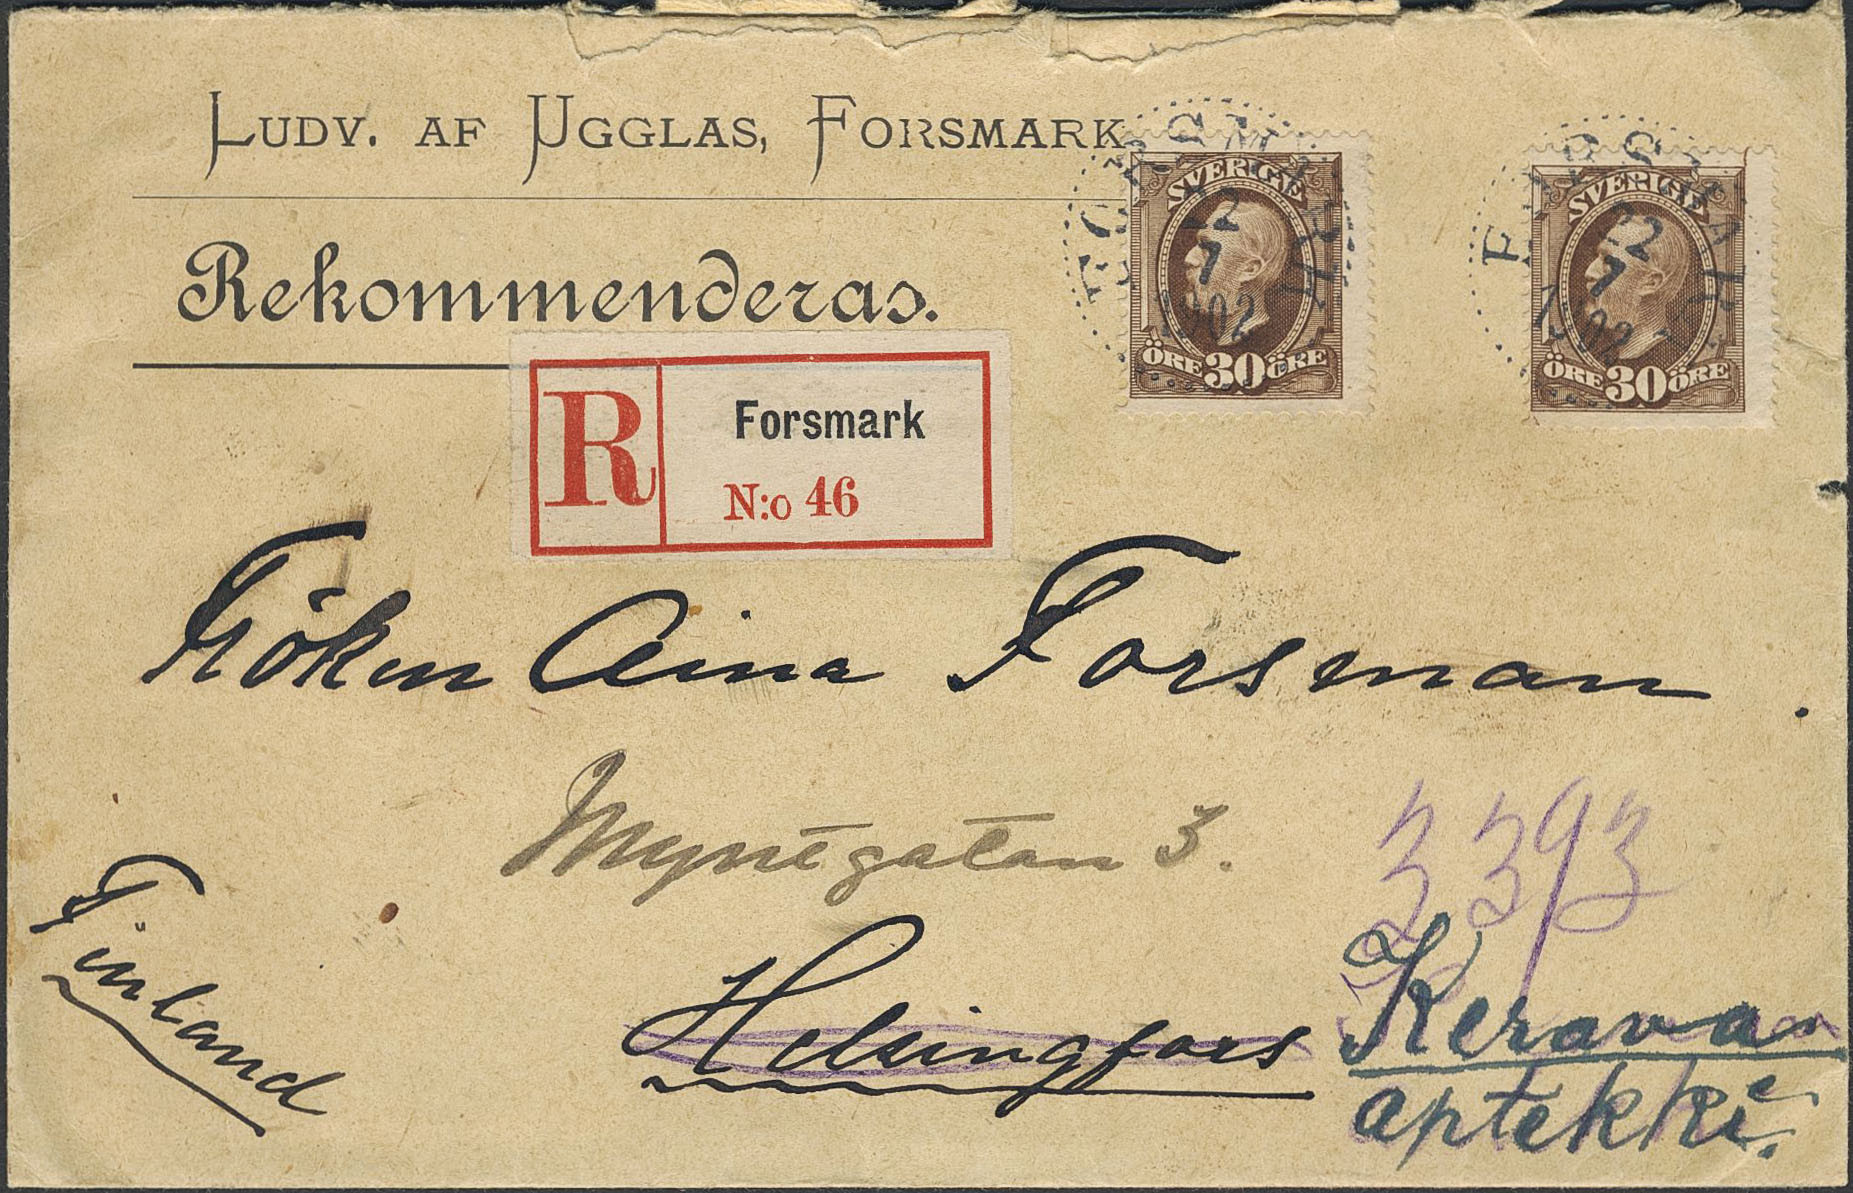 LUDV. AF UGGLAS, FORSMARK
Rekommenderas.
FORSMARK
22
7
1902
SVERIGE
ÖRE 30 ÖRE
FORSMARK
22
7
1902
SVERIGE
ÖRE 30 ÖRE
R
Forsmark
N:o 46
Fröken Aina Forsman.
Myntgatan 3.
3393
Finland
Helsingfors
Keravan
aptekki.